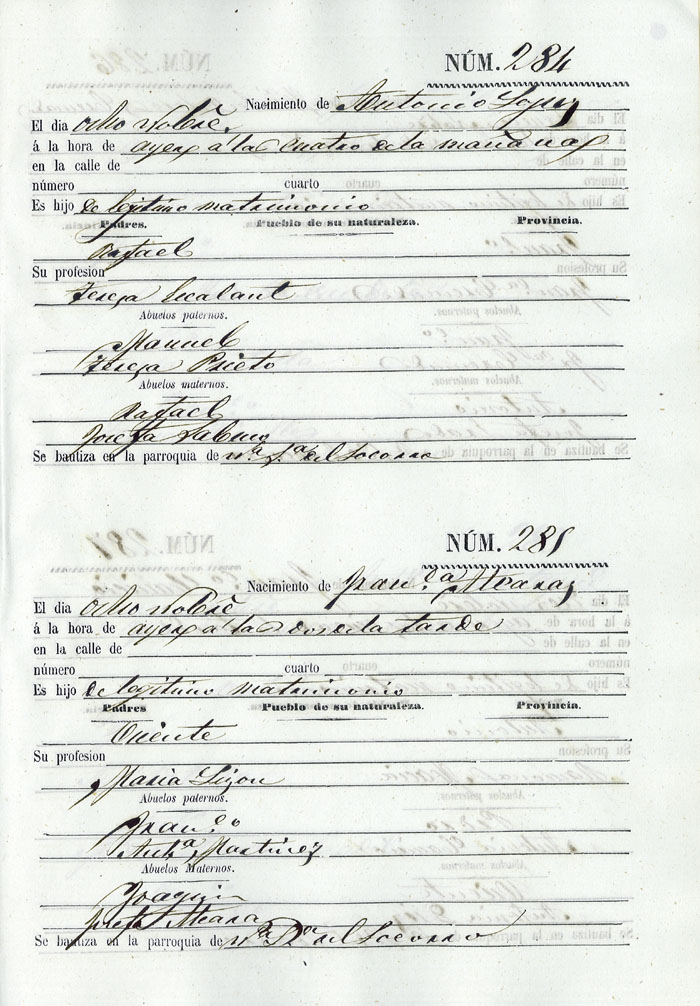 NÚM. 284
Nacimiento de Antonio Lopez
El dia ocho Nobre.
á la hora de ayer á las cuatro de la mañana
en la calle de
número cuarto
Es hijo de legitimo matrimonio
Padres. Pueblo de su naturaleza. Provincia.
Rafael
Su profesion
Teresa Escalant
Abuelos paternos.
Manuel
Teresa Prieto
Abuelos maternos.
Rafael
Josefa
Se bautiza en la parroquia de Nª Sª del Socorro
NÚM. 285
Nacimiento de Franca
El dia ocho Nobre
á la hora de ayer á las dos de la tarde
en la calle de
número cuarto
Es hijo de legitimo matrimonio
Padres Pueblo de su naturaleza. Provincia.
Vicente
Su profesion
Maria
Abuelos paternos.
Franco
Antª Martinez
Abuelos Maternos.
Joaquin
Josefa
Se bautiza en la parroquia de Nª Sª del Socorro